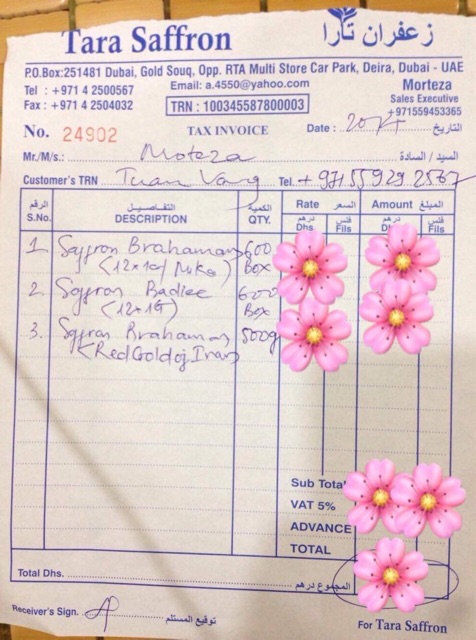 Tara Saffron زعفران تارا
P.O.Box:251481 Dubai, Gold Souq, Opp. RTA Multi Store Car Park, Deira, Dubai - UAE
Tel : +971 4 2500567 Email: a.4550@yahoo.com Morteza
Fax : +971 4 2504032 TRN : 100345587800003 Sales Executive
+971559453365
No. 24902 TAX INVOICE Date : التاريخ
Mr./M/s.: Moteza السيد / السادة
Customer's TRN Tuan Vang Tel. + 971 55 929 2567
الرقم التفاصيل الكمية Rate السعر Amount المبلغ
S.No. DESCRIPTION QTY. درهم Dhs. فلس Fils درهم فلس Fils
1. Saffron Brahaman 600
(12x1g/ Mika) Box
2. Saffron Badiee 600
(12x1G) Box
3. Saffron Brahaman 500g
(Red Gold of Iran)
Sub Total
VAT 5%
ADVANCE
TOTAL
Total Dhs. المجموع درهم
Receiver's Sign. توقيع المستلم
For Tara Saffron